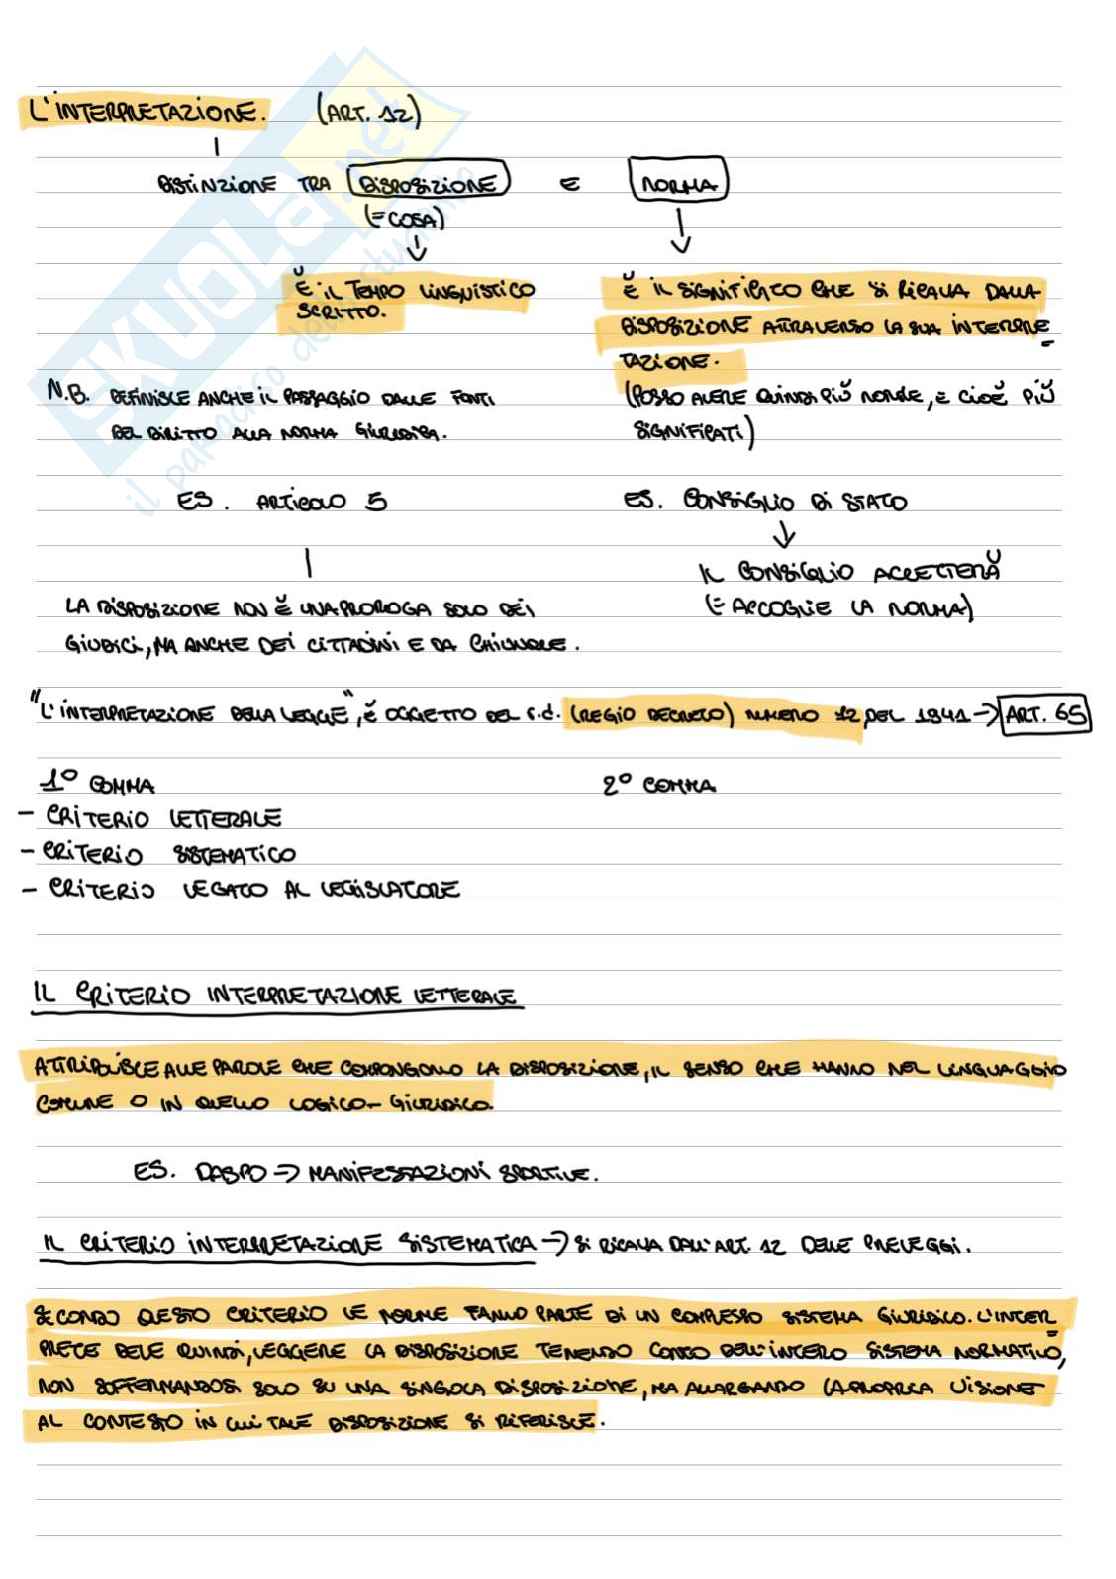 L'INTERPRETAZIONE. (ART. 12)
DISTINZIONE TRA DISPOSIZIONE E NORMA
(= COSA)
È IL TEMPO LINGUISTICO
SCRITTO.
È IL SIGNIFICATO CHE SI RICAVA DALLA
DISPOSIZIONE ATTRAVERSO LA SUA INTERPRE-
TAZIONE.
(POSSO AVERE QUINDI PIÙ NORME, E CIOÈ PIÙ
SIGNIFICATI)
N.B. DEFINISCE ANCHE IL PASSAGGIO DALLE FONTI
DEL DIRITTO ALLA NORMA GIURIDICA.
ES. ARTICOLO 5
LA DISPOSIZIONE NON È UNA PROROGA SOLO DEI
GIUDICI, MA ANCHE DEI CITTADINI E DA CHIUNQUE.
ES. CONSIGLIO DI STATO
IL CONSIGLIO ACCETTERÀ
(= ACCOGLIE LA NORMA)
"L'INTERPRETAZIONE DELLA LEGGE", È OGGETTO DEL r.d. (REGIO DECRETO) NUMERO 12 DEL 1941 → ART. 65
1° COMMA 2° COMMA
- CRITERIO LETTERALE
- CRITERIO SISTEMATICO
- CRITERIO LEGATO AL LEGISLATORE
IL CRITERIO INTERPRETAZIONE LETTERALE
ATTRIBUISCE ALLE PAROLE CHE COMPONGONO LA DISPOSIZIONE, IL SENSO CHE HANNO NEL LINGUAGGIO
COMUNE O IN QUELLO LOGICO-GIURIDICO.
ES. DASPO → MANIFESTAZIONI SPORTIVE.
IL CRITERIO INTERPRETAZIONE SISTEMATICA → SI RICAVA DALL'ART. 12 DELLE PRELEGGI.
SECONDO QUESTO CRITERIO LE NORME FANNO PARTE DI UN COMPLESSO SISTEMA GIURIDICO. L'INTER-
PRETE DEVE QUINDI, LEGGERE LA DISPOSIZIONE TENENDO CONTO DELL'INTERO SISTEMA NORMATIVO,
NON SOFFERMANDOSI SOLO SU UNA SINGOLA DISPOSIZIONE, MA ALLARGANDO LA PROPRIA VISIONE
AL CONTESTO IN CUI TALE DISPOSIZIONE SI RIFERISCE.
SKUOLA.net
il paradiso dello studente